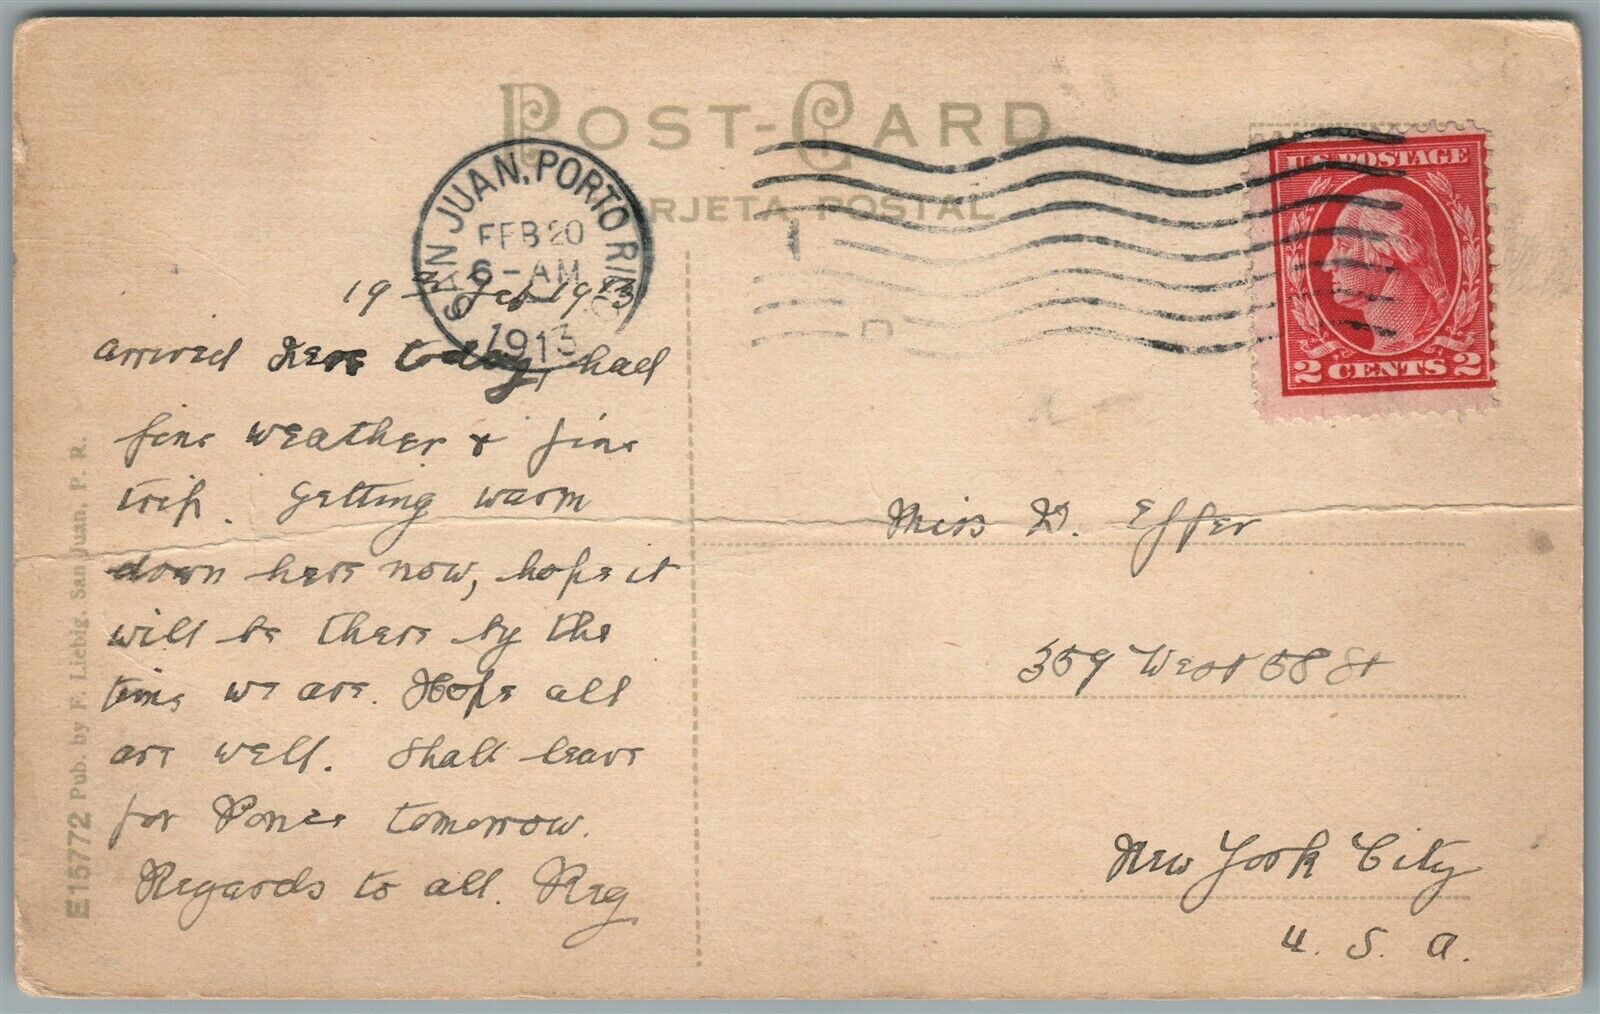 POST-CARD
TARJETA POSTAL
SAN JUAN, PORTO RICO
FEB 20
6-AM
1913
U.S. POSTAGE
2 CENTS 2
19th Feb 1913
Arrived here today, had
fine weather & fine
trip. Getting warm
down here now, hope it
will be there by the
time we are. Hope all
are well. Shall leave
for Ponce tomorrow.
Regards to all. Reg
Miss D. Effer
359 West 58 St
New York City
U. S. A.
E15772 Pub. by F. Liebig, San Juan, P. R.